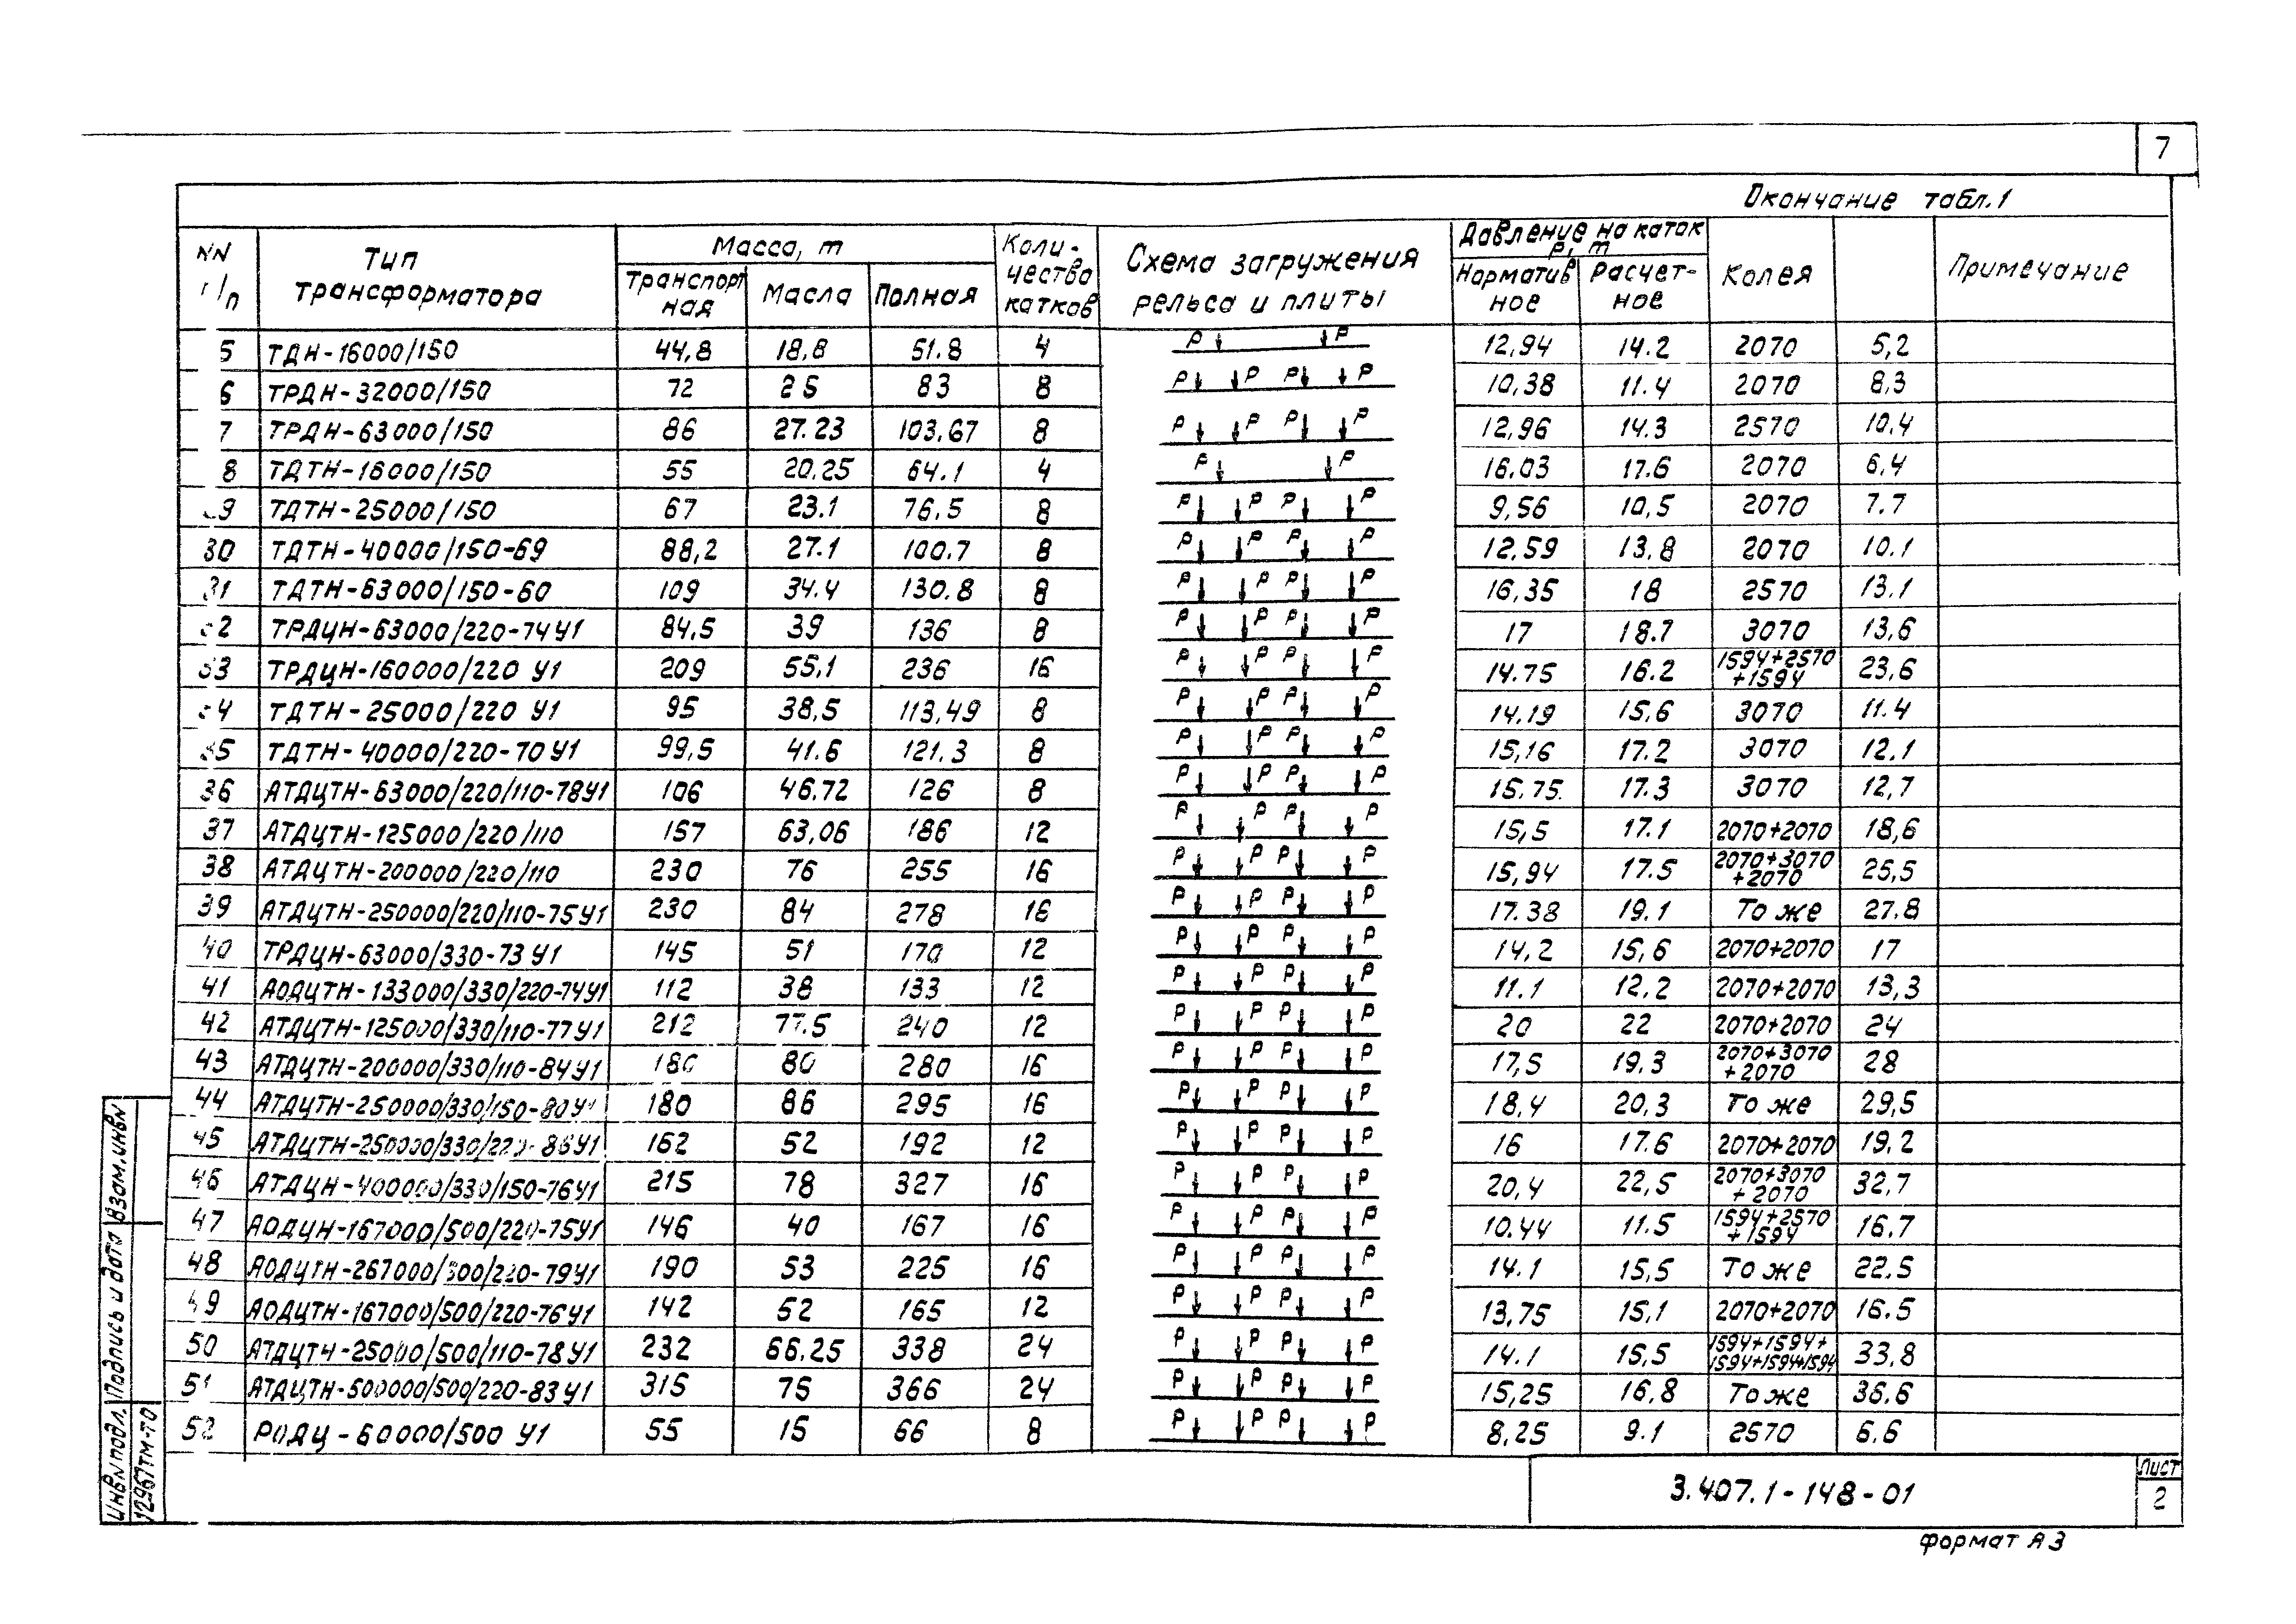 7
Окончание табл.1
NN п/п Тип трансформатора Масса, т Количества катков Схема загружения рельса и плиты Давление на каток P, т Колея Примечание
Транспортная Масла Полная Нормативное Расчетное
5 ТДН-16000/150 44,8 18,8 51.8 4 P P 12,94 14.2 2070 5,2
6 ТРДН-32000/150 72 25 83 8 P P P P 10,38 11.4 2070 8,3
7 ТРДН-63000/150 86 27.23 103,67 8 P P P P 12,96 14.3 2570 10.4
8 ТДТН-16000/150 55 20.25 64.1 4 P P 16.03 17.6 2070 6.4
9 ТДТН-25000/150 67 23.1 76,5 8 P P P P 9,56 10,5 2070 7.7
30 ТДТН-40000/150-69 88,2 27.1 100.7 8 P P P P 12,59 13,8 2070 10.1
31 ТДТН-63000/150-60 109 34.4 130.8 8 P P P P 16,35 18 2570 13.1
2 ТРДЦН-63000/220-74У1 84,5 39 136 8 P P P P 17 18.7 3070 13,6
33 ТРДЦН-160000/220 У1 209 55,1 236 16 P P P P 14.75 16.2 1594+2570+1594 23,6
4 ТДТН-25000/220 У1 95 38,5 113,49 8 P P P P 14.19 15,6 3070 11.4
35 ТДТН-40000/220-70У1 99,5 41.6 121.3 8 P P P P 15,16 17.2 3070 12,1
36 АТДЦТН-63000/220/110-78У1 106 46.72 126 8 P P P P 15.75. 17.3 3070 12,7
37 АТДЦТН-125000/220/110 157 63,06 186 12 P P P P 15,5 17.1 2070+2070 18,6
38 АТДЦТН-200000/220/110 230 76 255 16 P P P P 15,94 17.5 2070+3070+2070 25,5
39 АТДЦТН-250000/220/110-75У1 230 84 278 16 P P P P 17.38 19.1 То же 27.8
40 ТРДЦН-63000/330-73 У1 145 51 170 12 P P P P 14,2 15,6 2070+2070 17
41 АОДЦТН-133000/330/220-74У1 112 38 133 12 P P P P 11.1 12,2 2070+2070 13,3
42 АТДЦТН-125000/330/110-77У1 212 77.5 240 12 P P P P 20 22 2070+2070 24
43 АТДЦТН-200000/330/110-84У1 180 80 280 16 P P P P 17,5 19.3 2070+3070+2070 28
44 АТДЦТН-250000/330/150-80У1 180 86 295 16 P P P P 18,4 20,3 То же 29,5
45 АТДЦТН-250000/330/220-86У1 162 52 192 12 P P P P 16 17.6 2070+2070 19,2
46 АТДЦН-400000/330/150-76У1 215 78 327 16 P P P P 20,4 22,5 2070+3070+2070 32,7
47 АОДЦН-167000/500/220-75У1 146 40 167 16 P P P P 10.44 11.5 1594+2570+1594 16.7
48 АОДЦТН-267000/500/220-79У1 190 53 225 16 P P P P 14.1 15,5 То же 22.5
49 АОДЦТН-167000/500/220-76У1 142 52 165 12 P P P P 13,75 15,1 2070+2070 16.5
50 АТДЦТН-25000/500/110-78У1 232 66.25 338 24 P P P P 14.1 15,5 1594+1594+1594+1594+1594 33,8
51 АТДЦТН-500000/500/220-83У1 315 75 366 24 P P P P 15,25 16,8 То же 36.6
52 РОДЦ-60000/500 У1 55 15 66 8 P P P P 8,25 9.1 2570 6.6
Инв.N подл. Подпись и дата Взам.инвN
12967тм-т0
3.407.1-148-01
Лист
2
Формат А3